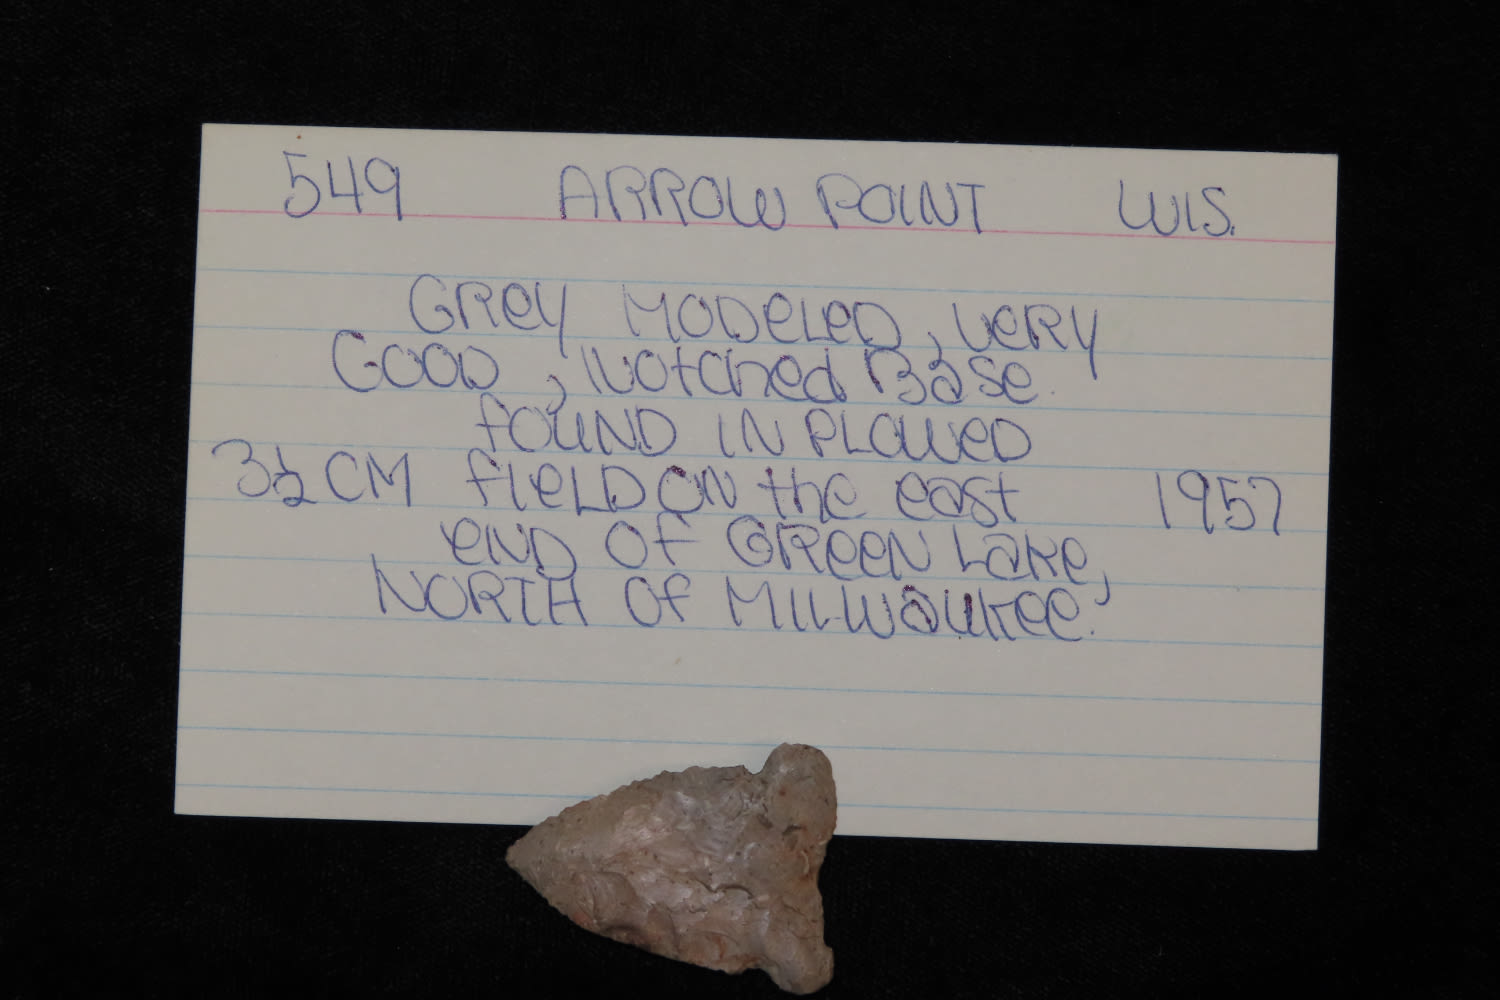 549 ARROW POINT WIS.
GREY MODELED, VERY
GOOD, NOTCHED BASE.
FOUND IN PLOWED
3½ CM FIELD ON THE EAST 1957
END OF GREEN LAKE,
NORTH OF MILWAUKEE.